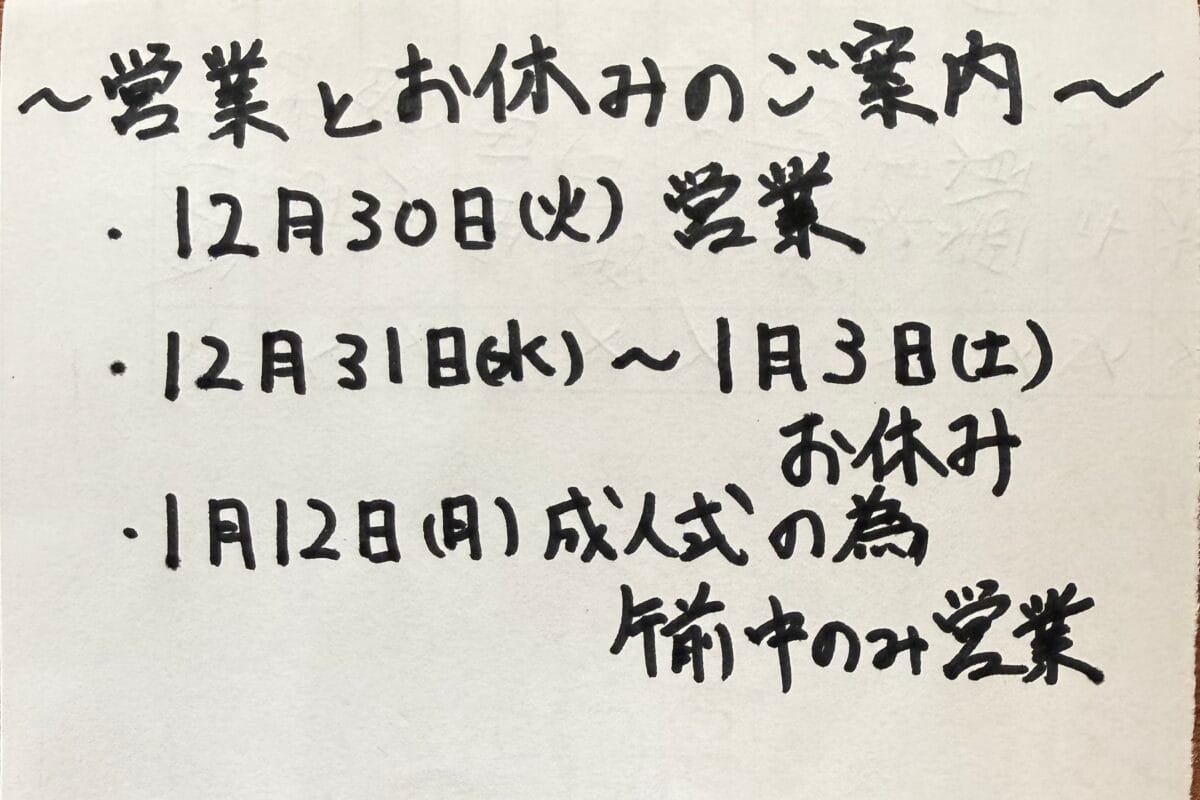 ～営業とお休みのご案内～
・12月30日(火) 営業
・12月31日(水)～1月3日(土)
お休み
・1月12日(月)成人式の為
午前中のみ営業